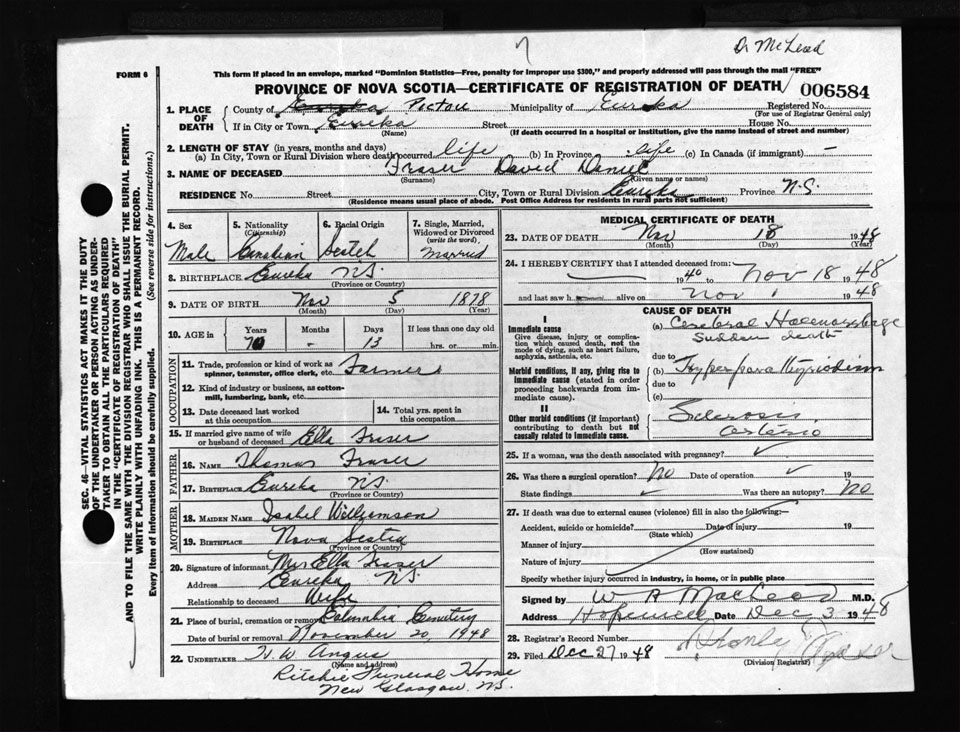 Dr McLeod
7
FORM 6
This form if placed in an envelope, marked "Dominion Statistics—Free, penalty for improper use $300," and properly addressed will pass through the mail "FREE"
PROVINCE OF NOVA SCOTIA—CERTIFICATE OF REGISTRATION OF DEATH 006584
1. PLACE OF DEATH County of Eureka Pictou Municipality of Eureka Registered No.
(For use of Registrar General only)
If in City or Town Eureka Street House No.
(Name) (If death occurred in a hospital or institution, give the name instead of street and number)
2. LENGTH OF STAY (in years, months and days)
(a) In City, Town or Rural Division where death occurred life (b) In Province life (c) In Canada (if immigrant) —
3. NAME OF DECEASED Fraser David Daniel
(Surname) (Given name or names)
RESIDENCE No. Street City, Town or Rural Division Eureka Province N.S.
(Residence means usual place of abode. Post Office Address for residents in rural parts not sufficient)
4. Sex 5. Nationality (Citizenship) 6. Racial Origin 7. Single, Married, Widowed or Divorced (write the word)
Male Canadian Scotch Married
8. BIRTHPLACE Eureka N.S.
(Province or Country)
9. DATE OF BIRTH Nov 5 1878
(Month) (Day) (Year)
10. AGE in Years Months Days If less than one day old
70 - 13 hrs. or min.
OCCUPATION
11. Trade, profession or kind of work as spinner, teamster, office clerk, etc. Farmer
12. Kind of industry or business, as cotton-mill, lumbering, bank, etc.
13. Date deceased last worked at this occupation 14. Total yrs. spent in this occupation
15. If married give name of wife or husband of deceased Ella Fraser
FATHER
16. NAME Thomas Fraser
17. BIRTHPLACE Eureka N.S.
(Province or Country)
MOTHER
18. MAIDEN NAME Isabel Williamson
19. BIRTHPLACE Nova Scotia
(Province or Country)
20. Signature of informant Mrs Ella Fraser
Address Eureka N.S.
Relationship to deceased Wife
21. Place of burial, cremation or removal Columbia Cemetery
Date of burial or removal November 20, 1948
22. UNDERTAKER W. Angus
(Name and address)
Ritchie Funeral Home
New Glasgow N.S.
MEDICAL CERTIFICATE OF DEATH
23. DATE OF DEATH Nov 18 1948
(Month) (Day) (Year)
24. I HEREBY CERTIFY that I attended deceased from:
1940 to Nov 18 1948
and last saw h alive on Nov 1948
CAUSE OF DEATH
I
Immediate cause
Give disease, injury or complication which caused death, not the mode of dying, such as heart failure, asphyxia, asthenia, etc.
(a) Cerebral Haemorrhage
Sudden death
due to
Morbid conditions, if any, giving rise to immediate cause (stated in order proceeding backwards from immediate cause).
(b) Hyperparathyriodism
due to
(c)
II
Other morbid conditions (if important) contributing to death but not causally related to immediate cause.
Sclerosis
25. If a woman, was the death associated with pregnancy?
26. Was there a surgical operation? No Date of operation 19
State findings Was there an autopsy? No
27. If death was due to external causes (violence) fill in also the following:—
Accident, suicide or homicide? Date of injury 19
(State which)
Manner of injury
(How sustained)
Nature of injury
Specify whether injury occurred in industry, in home, or in public place
Signed by W A MacLeod M.D.
Address Hopewell Date Dec 3 1948
28. Registrar's Record Number
29. Filed Dec 27 1948
(Division Registrar)
SEC. 46—VITAL STATISTICS ACT MAKES IT THE DUTY
OF THE UNDERTAKER OR PERSON ACTING AS UNDER-
TAKER TO OBTAIN ALL THE PARTICULARS REQUIRED
IN THE "CERTIFICATE OF REGISTRATION OF DEATH"
AND TO FILE THE SAME WITH THE DIVISION REGISTRAR WHO SHALL ISSUE THE BURIAL PERMIT.
WRITE PLAINLY WITH UNFADING INK. THIS IS A PERMANENT RECORD.
Every item of information should be carefully supplied. (See reverse side for instructions.)